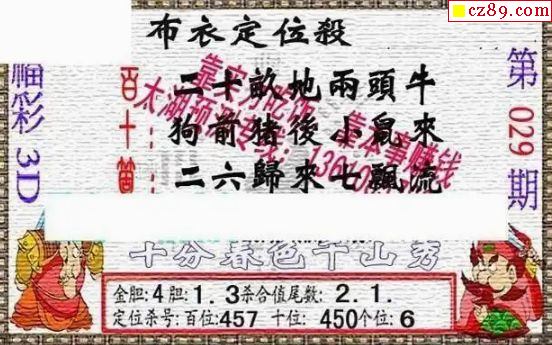 cz89.com
布衣定位殺
福彩3D
第029期
百十箇
二十畝地兩頭牛
狗前猪後小鼠來
二六歸來七飄流
十分春色千山秀
金胆:4胆:1.3杀合值尾数:2.1.
定位杀号:百位:457 十位:450个位:6